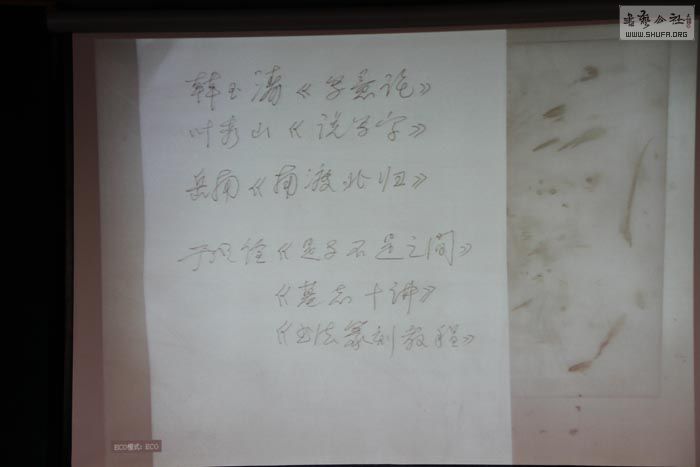 书艺公社
WWW.SHUFA.ORG
韩玉涛《写意论》
叶秀山《说写字》
岳南《南渡北归》
于明诠《是与不是之间》
《墓志十讲》
《书法篆刻教程》
ECO模式: ECO